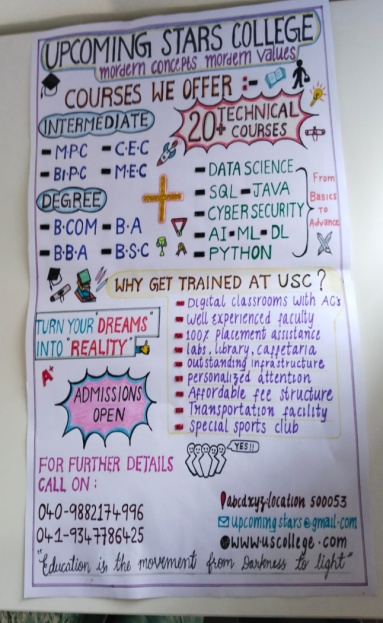 UPCOMING STARS COLLEGE
mordern concepts mordern values
COURSES WE OFFER :-
INTERMEDIATE
- M.P.C - C.E.C
- BI.P.C - M.E.C
20+ TECHNICAL COURSES
DEGREE
- B.COM - B.A
- B.B.A - B.S.C
- DATA SCIENCE
- SQL - JAVA
- CYBER SECURITY
- AI - ML - DL
- PYTHON
From
Basics
To
Advance
WHY GET TRAINED AT USC?
TURN YOUR "DREAMS"
INTO "REALITY"
- Digital classrooms with AC's
- well Experienced faculty
- 100% placement assistance
- labs, library, caffetaria
- outstanding infrastructure
- personalized attention
- Affordable fee structure
- Transportation facility
- special sports club
A+
ADMISSIONS
OPEN
YES!!
FOR FURTHER DETAILS
CALL ON :
040-9882174996
041-9347786425
abcdxyz-location 500053
upcomingstars@gmail.com
www.uscollege.com
"Education is the movement from Darkness to light"